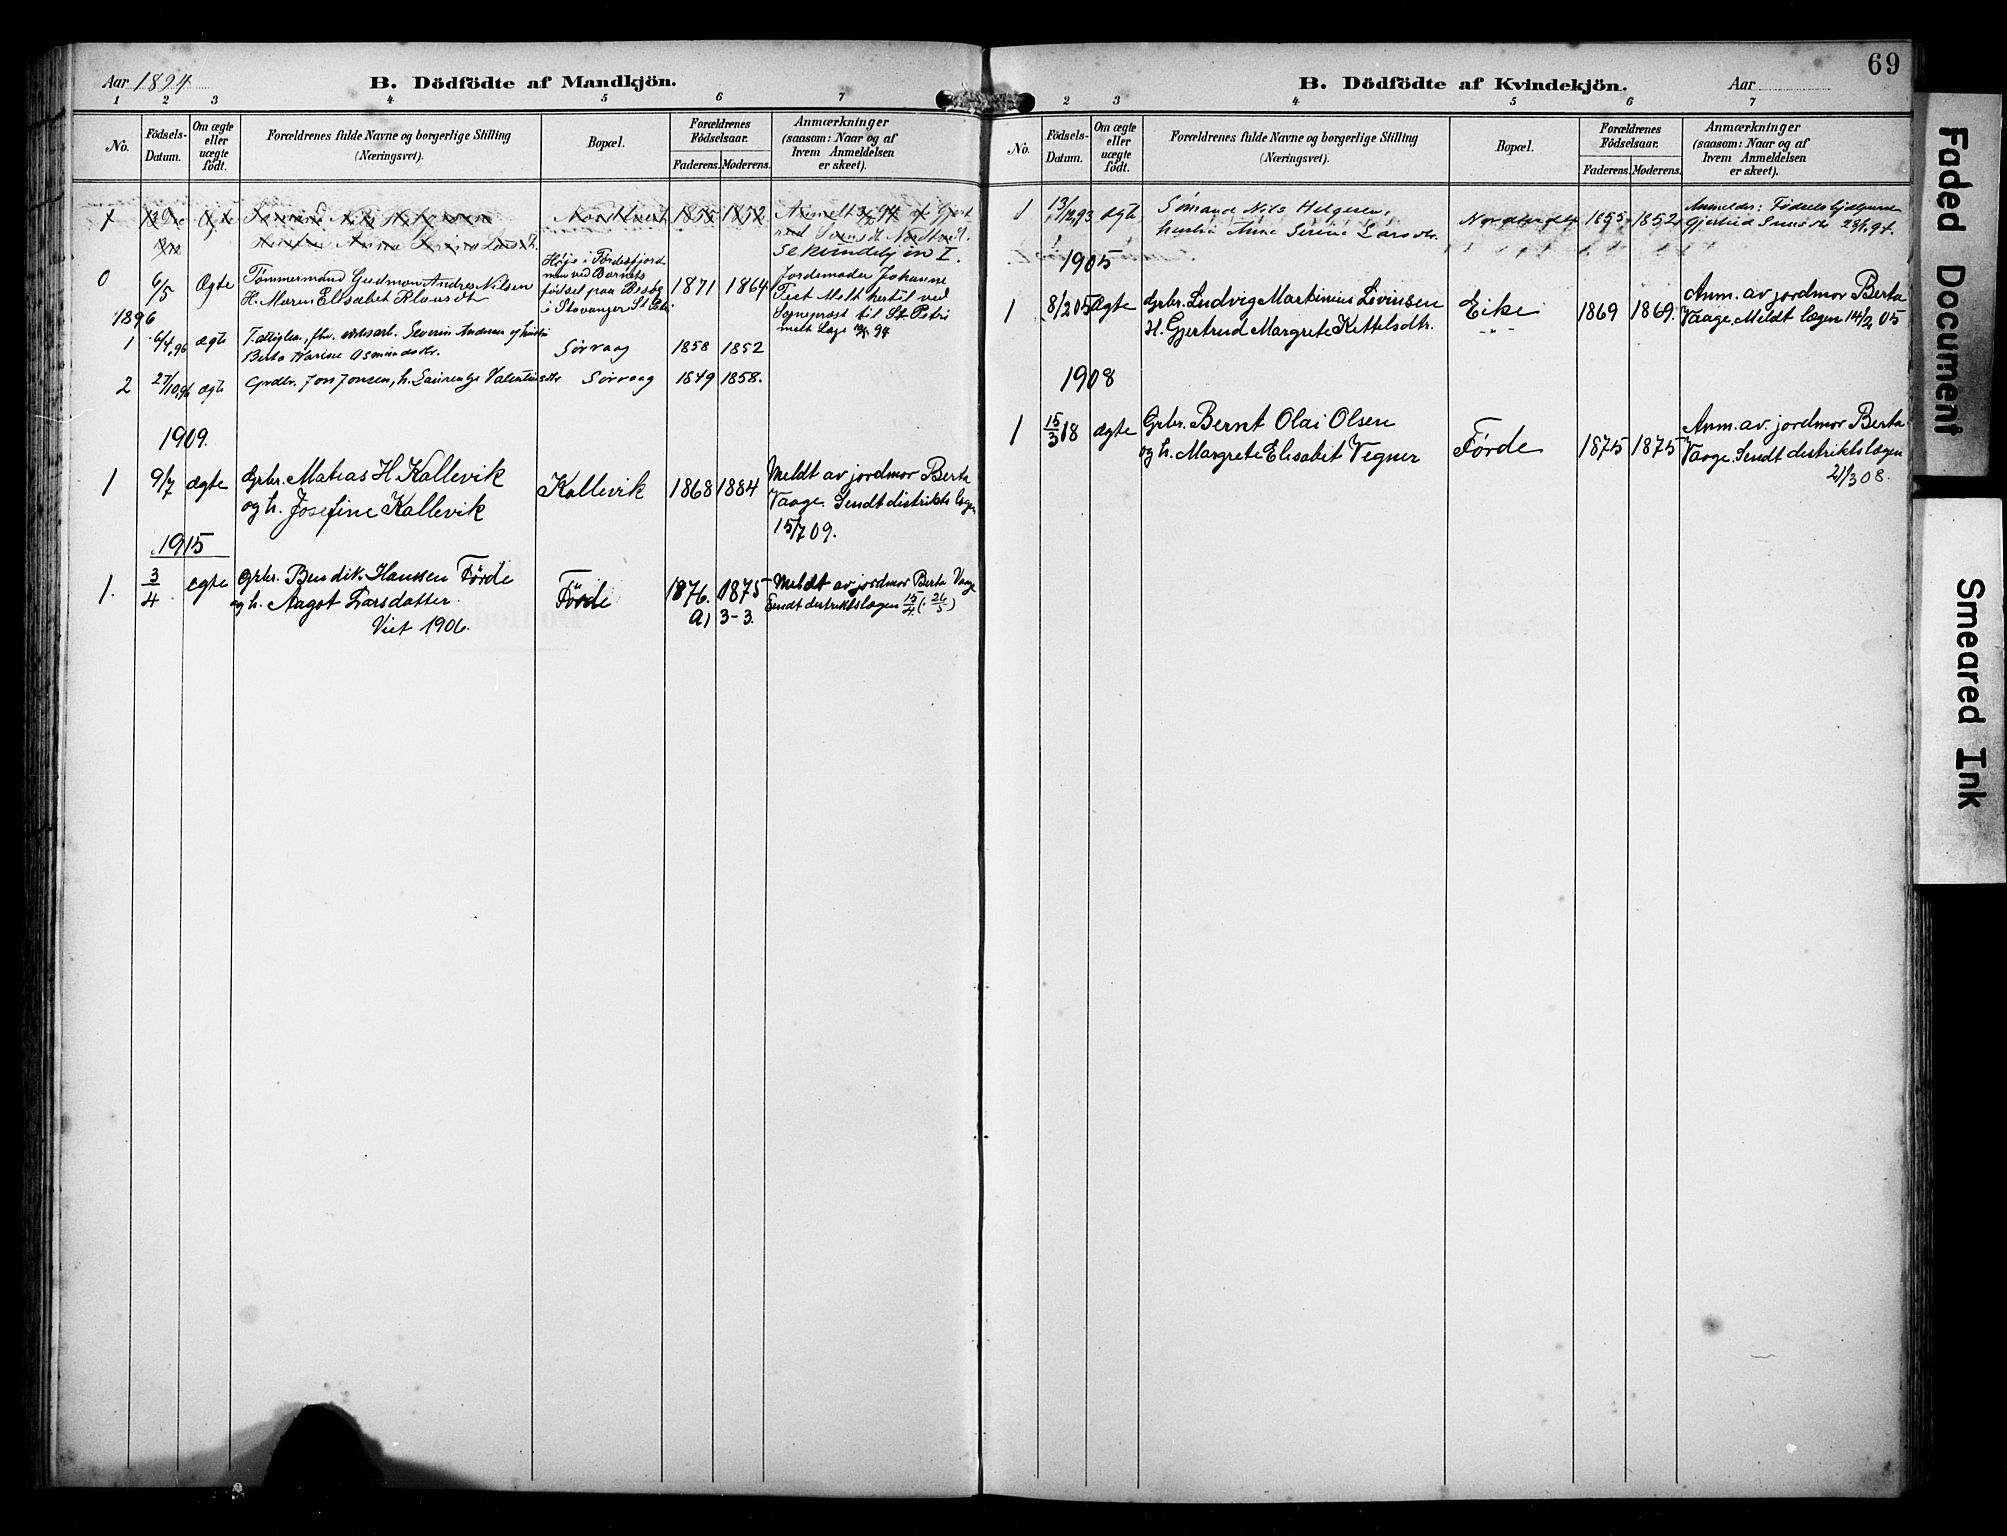 69
Aar 1894
B. Dödfödte af Mandkjön.
1 2 3 4 5 6 7
No.
Födsels-Datum.
Om ægte eller uægte födt.
Forældrenes fulde Navne og borgerlige Stilling
(Næringsvei).
Bopæl.
Forældrenes Födselsaar.
Faderens. Moderens.
Anmærkninger
(saasom: Naar og af
hvem Anmeldelsen
er skeet).
1855 1852
Se Kvindekjön I.
0 6/5 Ægte Tømmermand Gudmon Andres Nilsen
H. Maren Elisabet Klausdt
Høje i Førdefjord
men ved Barnets
fødsel paa Besøg
i Stavanger St. Petri
1871 1864
Jordemoder Johanne
Tveit Meldt hertil ved
Sogneprest til St. Petri
1896
1 6/4 96 ægte Severin Andersen og hustru
Berta Karine Asmundsdtr.
Sørvaag 1858 1852
2 27/10 96 ægte Grdbr. Jon Jonsen, h. Laurentze Valentinsdtr Sørvaag 1849 1858.
1909.
1 9/7 ægte Grbr. Matias H. Kallevik
og h. Josefine Kallevik
Kallevik 1868 1884
Meldt av jordmor Berta
Vaage. Sendt distriktslægen
15/7 09.
1915
1. 3/4 ægte Grbr. Bendik Hanssen Førde
og h. Aagot Larsdatter.
Viet 1906.
Förde 1876. 1875
a) 3-3.
Meldt av jordmor Berta Vaage
Sendt distriktslægen 15/4 (26/5)
B. Dödfödte af Kvindekjön.
Aar
2 3 4 5 6 7
No.
Födsels-Datum.
Om ægte eller uægte födt.
Forældrenes fulde Navne og borgerlige Stilling
(Næringsvei).
Bopæl.
Forældrenes Födselsaar.
Faderens. Moderens.
Anmærkninger
(saasom: Naar og af
hvem Anmeldelsen
er skeet).
1 13/12 93 ægte Sømand Nils Helgesen,
hustru Anne Serine Larsdtr.
1855 1852
1905
1 8/2 05 Ægte Grbr. Ludvig Martinius Livinsen
H. Gjertrud Margrete Kittelsdtr.
Eike
" "
1869 1869.
Anm. av jordmor Berta
Vaage. Meldt lægen 14/2 05
1908
1 15/3 18 ægte Grbr. Bernt Olai Olsen
og h. Margrete Elisabet Vegner
Førde 1875 1875
Anm. av jordmor Berta
Vaage. Sendt distriktslægen
21/3 08.
Faded Document
Smeared Ink